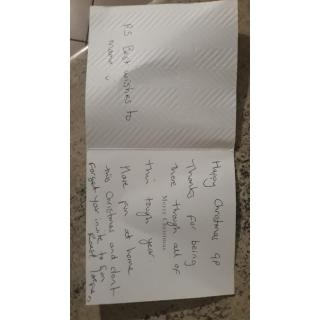 PS Best wishes to
Happy Christmas GP
Thanks for being
there though all of
Merry Christmas
this tough year
Have fun at home
this Christmas and dont
forget your invite to
Roast